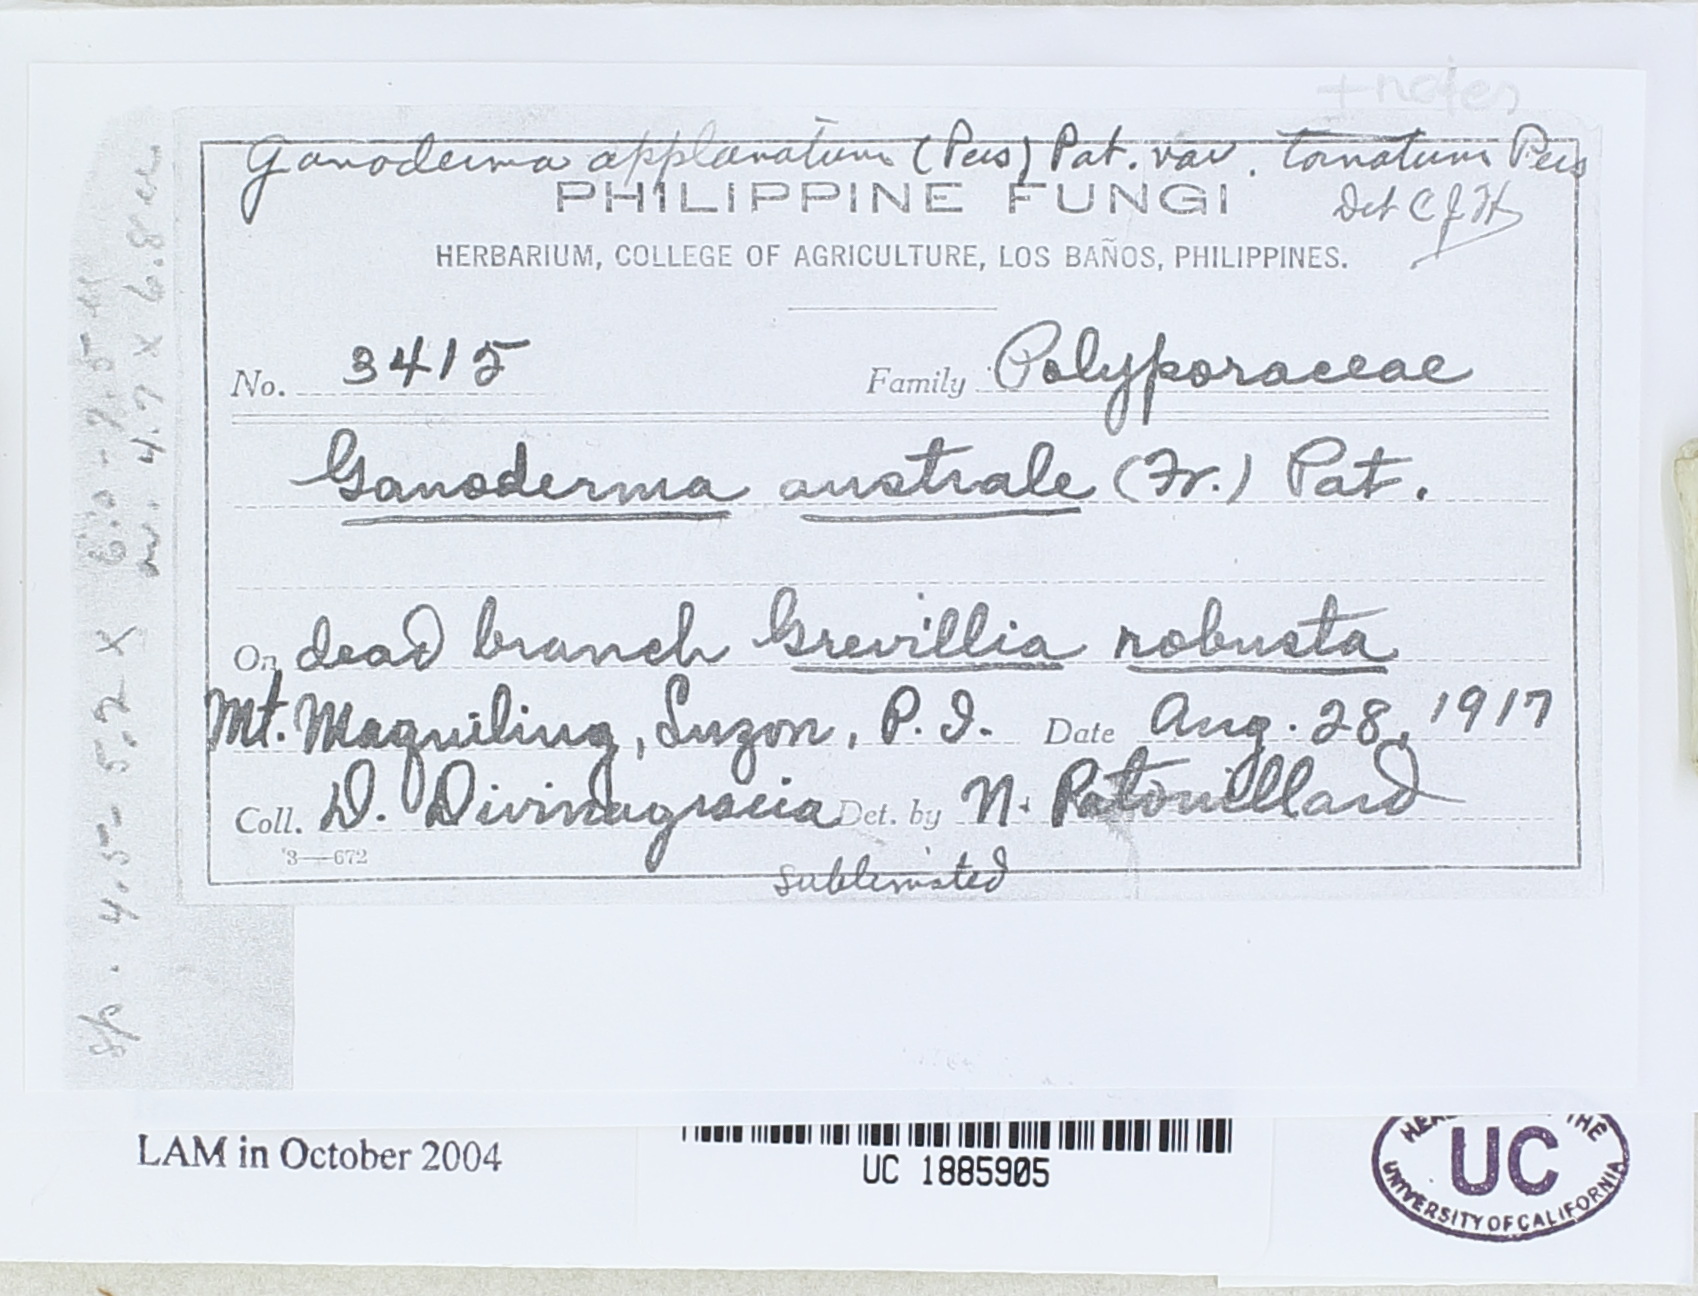 + notes
Ganoderma applanatum (Pers) Pat. var. tornatum Pers
PHILIPPINE FUNGI
Det C J H
HERBARIUM, COLLEGE OF AGRICULTURE, LOS BAÑOS, PHILIPPINES.
No. 3415 Family Polyporaceae
Ganoderma australe (Fr.) Pat.
On dead branch Grevillia robusta
Mt. Maquiling, Luzon, P. I. Date Aug. 28, 1917
Coll. D. Divinagracia Det. by N. Patouillard
3—672
sp. 4.5- 5.2 X 6.0 - 7.5 µ
av. 4.7 X 6.8 µ
LAM in October 2004
UC 1885905
THE
UC
UNIVERSITY OF CALIFORNIA